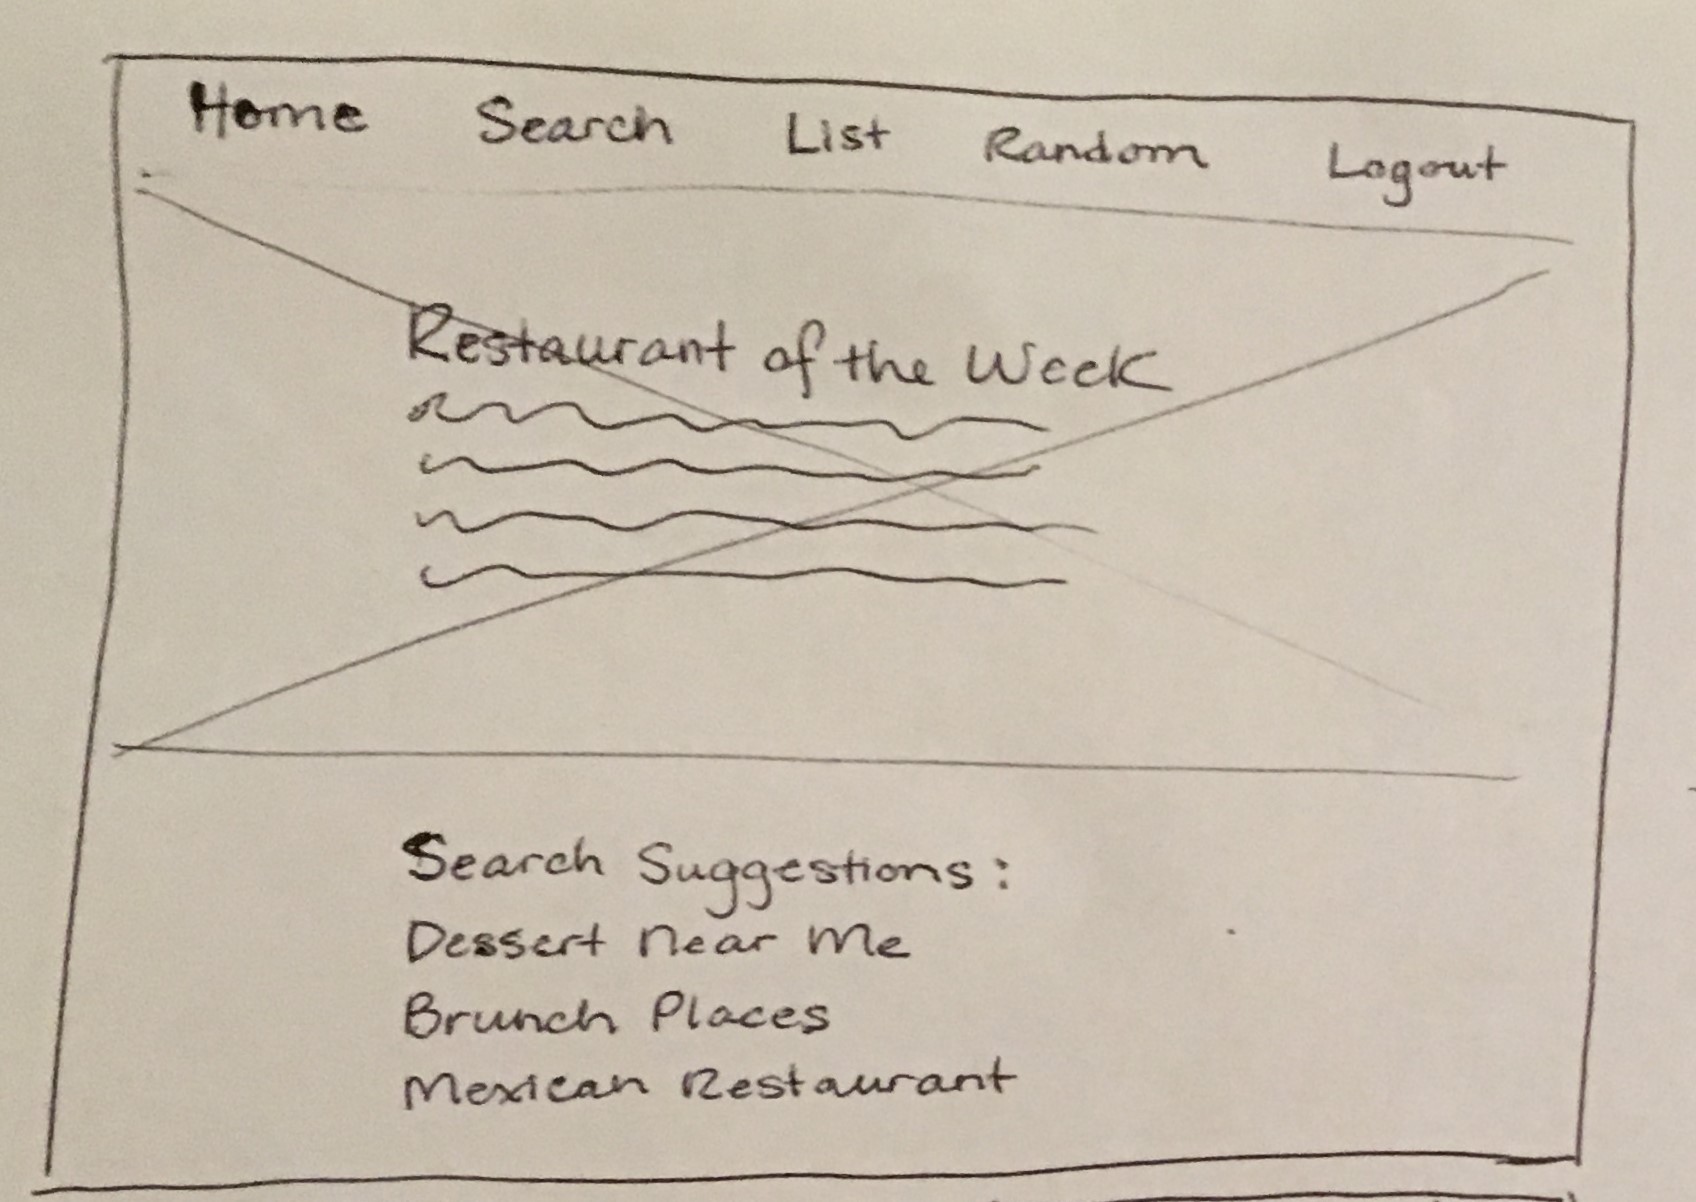 Home Search List Random Logout
Restaurant of the Week
Search Suggestions:
Dessert near me
Brunch Places
Mexican Restaurant